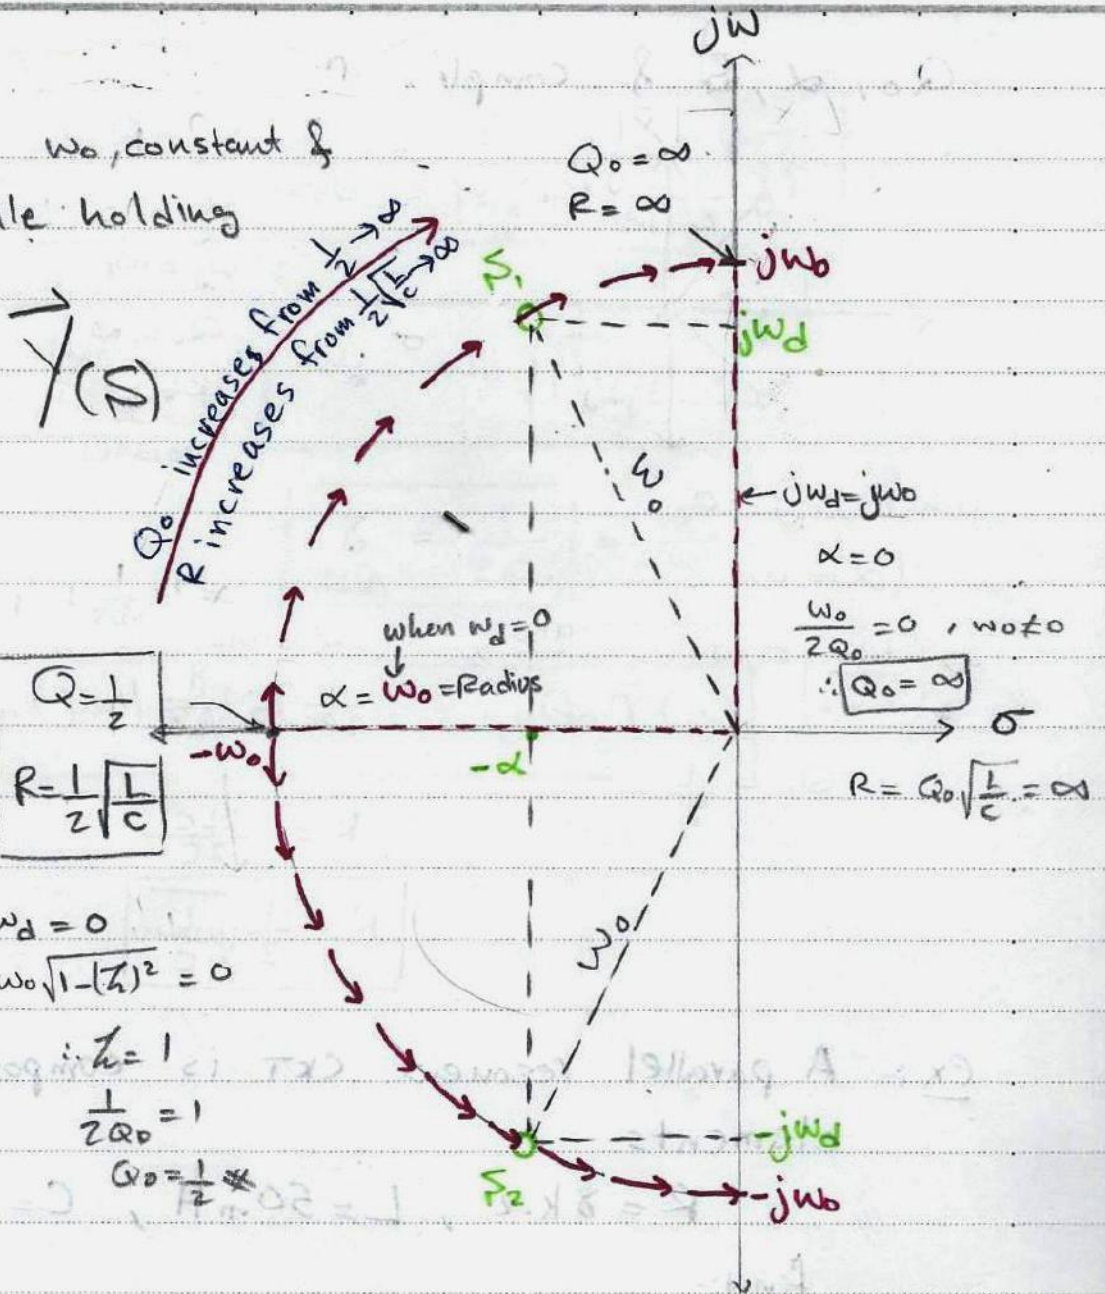 jω
ω₀, constant &
le holding
Q₀ = ∞
R = ∞
Q₀ increases from 1/2 → ∞
R increases from 1/2 √(L/C) → ∞
Y(S)
S₁
jω₀
jωd
ω₀
← jωd = jω₀
α = 0
ω₀/2Q₀ = 0, ω₀ ≠ 0
∴ Q₀ = ∞
when ωd = 0
α = ω₀ = Radius
Q = 1/2
-ω₀
-α
σ
R = 1/2 √(L/C)
R = Q₀ √(L/C) = ∞
ωd = 0
ω₀ √(1-(ζ)²) = 0
∴ ζ = 1
1/2Q₀ = 1
Q₀ = 1/2 #
ω₀
S₂
-jωd
-jω₀